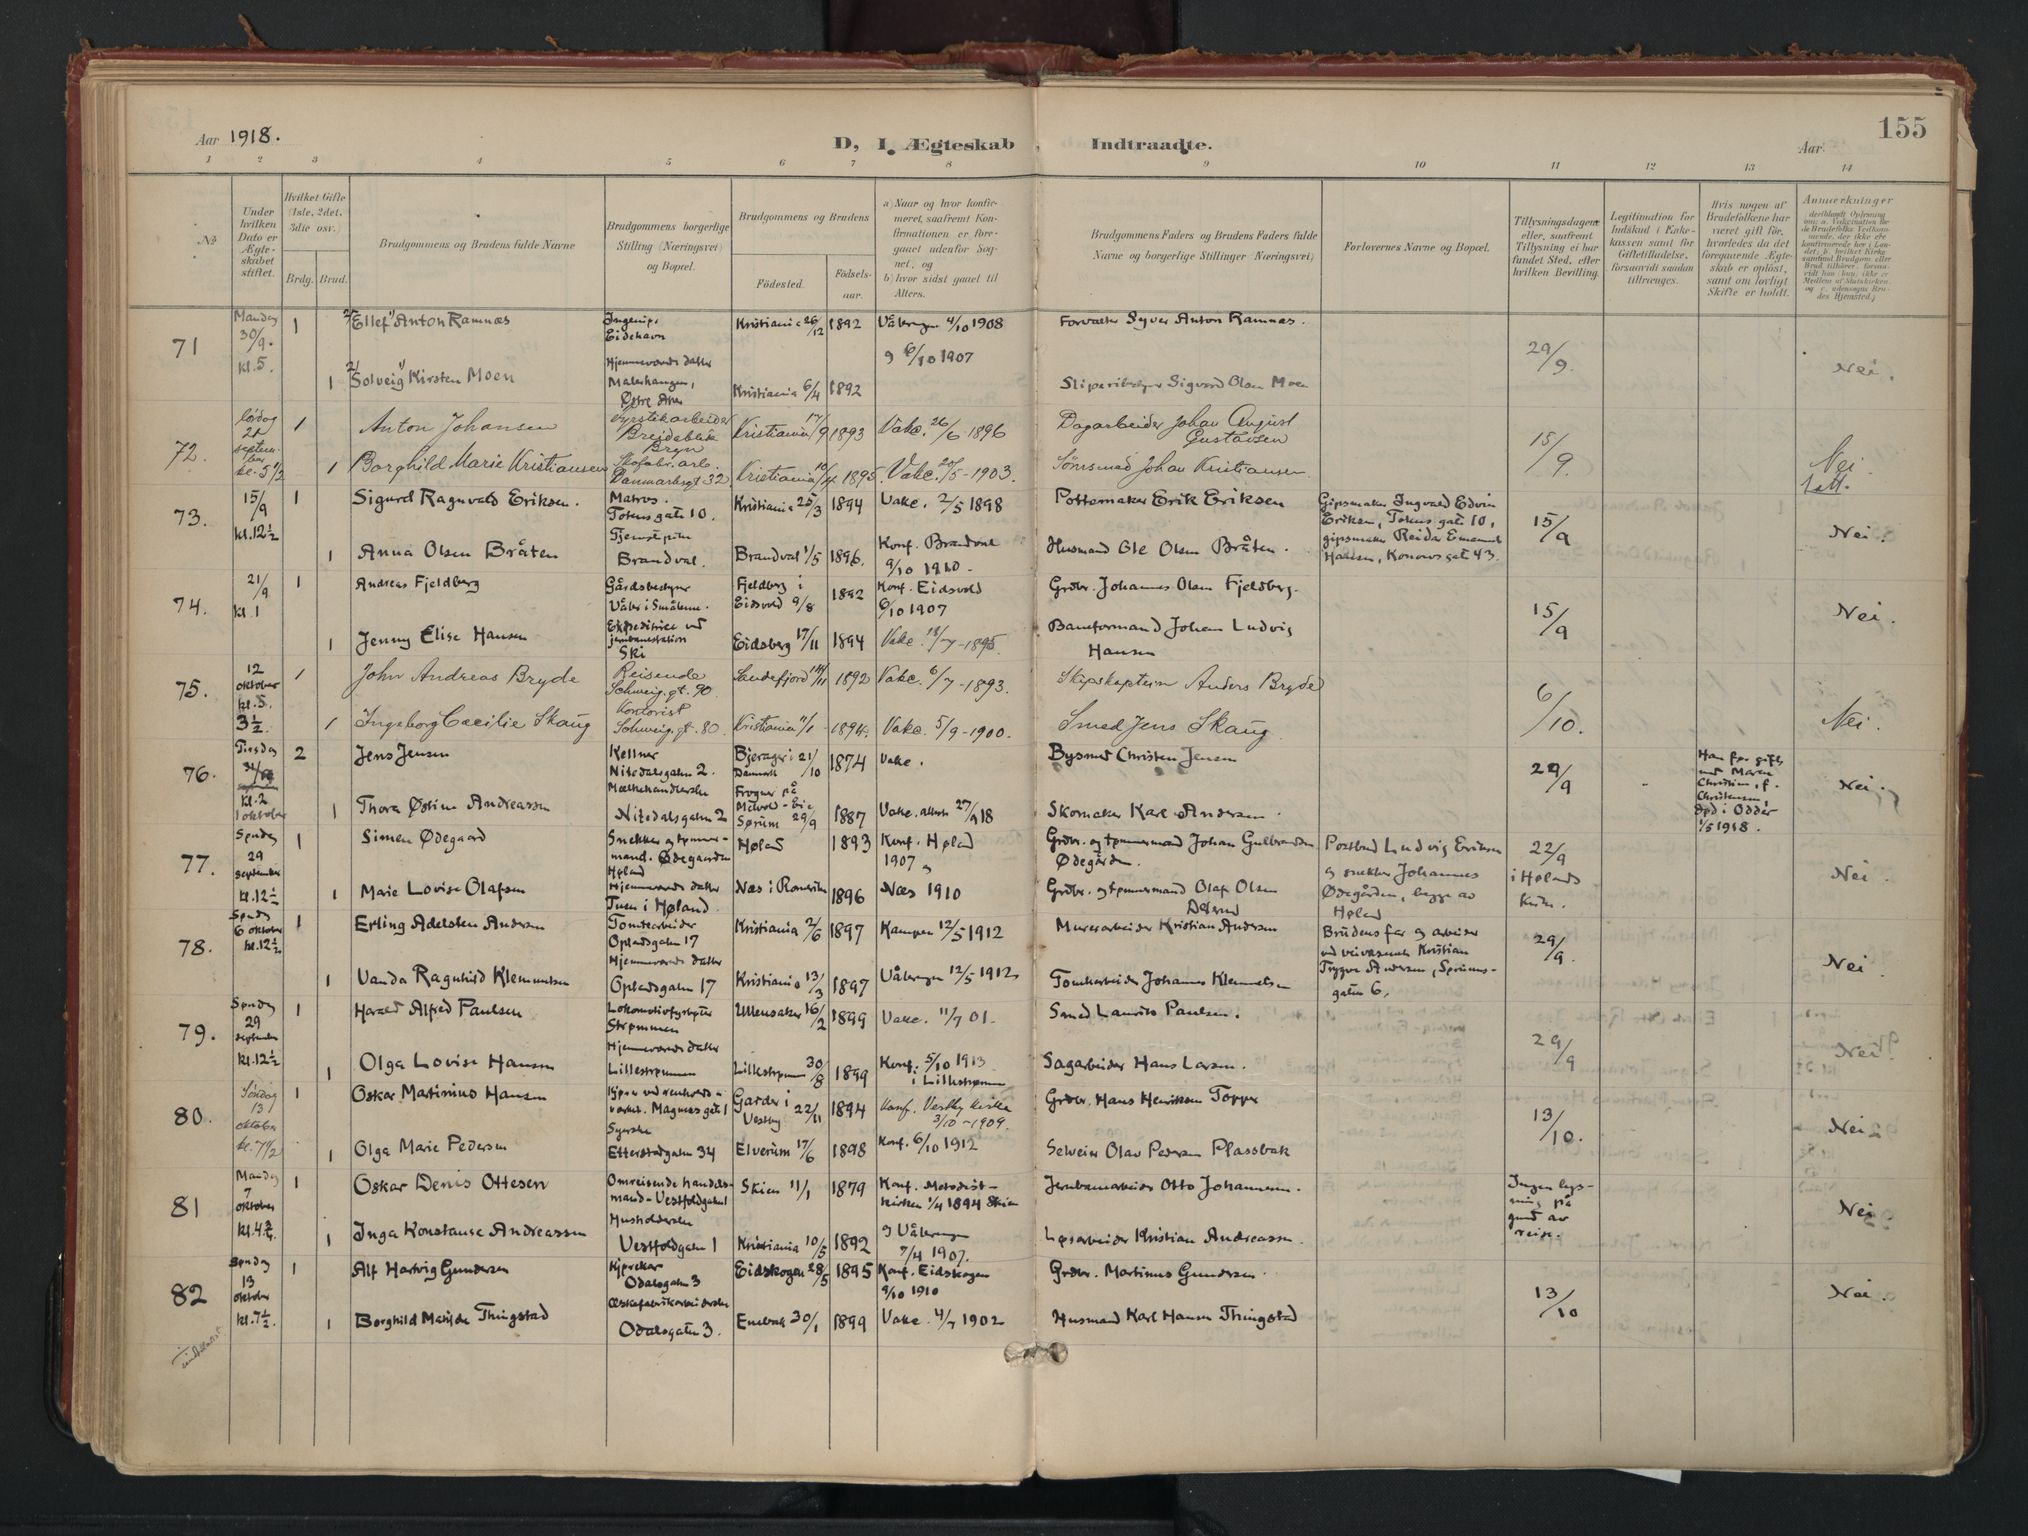 155
Aar 1918.
D, I. Ægteskab Indtraadte.
Aar
1 2 3 4 5 6 7 8 9 10 11 12 13 14
No
Under hvilken Dato er Ægteskabet stiftet.
Hvilket Gifte (1ste, 2det, 3die osv.)
Brdg. Brud.
Brudgommens og Brudens fulde Navne
Brudgommens borgerlige Stilling (Næringsvei) og Bopæl.
Brudgommens og Brudens
Födested. Födsels-aar.
a) Naar og hvor konfirmeret, saafremt Konfirmationen er foregaaet udenfor Sognet, og
b) hvor sidst gaaet til Alters.
Brudgommens Faders og Brudens Faders fulde Navne og borgerlige Stillinger (Næringsvei)
Forlovernes Navne og Bopæl.
Tillysningsdagene eller, saafremt Tillysning ei har fundet Sted, efter hvilken Bevilling.
Legitimation for Indskud i Enkekassen samt for Giftetilladelse, forsaavidt saadan tiltrænges.
Hvis nogen af Brudefolkene har været gift för, hvorledes da det foregaaende Ægteskab er oplöst, samt om lovligt Skifte er holdt.
Anmerkninger
71 Mandag 30/9. kl. 5.
1 Ellef Anton Ramnæs Ingeniør Eidehavn Kristiania 26/12 1892 Vålerengen 4/10 1908 Forvalter Syver Anton Ramnæs. 29/9. Nei.
1 Solveig Kirsten Moen Hjemmeværende datter Malerhaugen, Østre Aker Kristiania 6/4 1892 6/10 1907 Sliperibestyrer Sigvard Olsen Moen
72. Lördag 21 september kl. 5 1/2
1 Anton Johansen Fyrstikarbeider Breidablik Bryn Kristiania 17/9 1893 Vakc. 26/6-1896 Dagarbeider Johan August Gustavsen 15/9. Nei.
1 Borghild Marie Kristiansen Skofabr. arb. Danmarksgt 32 Kristiania 10/4 1895. Vakc. 20/5-1903. Johan Kristiansen
73. 15/9 kl. 12 1/2
1 Sigurd Ragnvald Eriksen. Matros. Totensgaten 10. Kristiania 25/3 1894 Vakc. 2/5 1898 Pottemaker Erik Eriksen Gipsmaker Ingvald Edvin Eriksen, Totensgaten 10, gipsmaker Reidar Emanuel Hansen, Konowsgate 43. 15/9 Nei.
1 Anna Olsen Bråten Tjenstepike Brandval. Brandval 1/5 1896. Konf. Brandval 9/10 1910. Husmand Ole Olsen Bråten.
74. 21/9 kl. 1
1 Andreas Fjeldberg Gårdsbestyrer Våler i Smålene. Fjeldberg i Eidsvold 9/8 1892 Konf. Eidsvold 6/10 1907 Grdbr. Johannes Olsen Fjeldberg. 15/9 Nei.
1 Jenny Elise Hansen Expeditrice ved jernbanestation Ski Eidsberg 17/11 1894 Vakc. 18/7-1895. Baneformand Johan Ludvig Hansen
75. 12 oktober kl. 5. 3 1/2
1 John Andreas Bryde Reisende Schweig. gt. 90. Sandefjord 14/11 1892 Vakc. 6/7-1893. Skipskaptein Anders Bryde 6/10. Nei.
1 Ingeborg Cæcilie Skaug Kontorist Schweig. gt. 80. Kristiania 11/1- 1894. Vakc. 5/9-1900. Smed Jens Skaug.
76. Tirsdag kl. 2 1 oktober
2 Jens Jensen Kellner Nitedalsgaten 2. Bjerager i Danmark 21/10 1874 Vakc. Bysmed Christen Jensen 29/9 Han før gift med Maren Christine, f. Christensen, død i Odder 1/5 1918. Nei.
1 Thora Østine Andreassen Melkehandlerske Nitedalsgaten 2 Frogner på Sørum 29/9 1887 Vakc. attest 27/9 18 Skomaker Karl Andersen.
77. Søndag 29 september kl. 12 1/2
1 Simen Ødegaard Snekker og tømmermand. Ødegaarden Høland Høland 1893 Konf. Høland 1907 Grdbr. og tømmermand Johan Gulbrandsen Ødegården. Postbud Ludvig Eriksen og snekker Johannes Ødegården, begge av Høland 22/9 i Hølands kirke. Nei.
1 Marie Lovise Olafsen Hjemmeværende datter Tuen i Høland. Næs i Romerike 1896 Næs 1910 Grdbr. og tømmermand Olaf Olsen
78. Søndag 6 oktober kl. 12 1/2
1 Erling Adelsten Andersen Tomtearbeider Oplandsgaten 17 Kristiania 2/6 1897 Kampen 12/5 1912 Murerarbeider Kristian Andersen Brudens far og arbeider ved veivæsenet Kristian Trygve Andersen, Sørumsgaten 6. 29/9. Nei.
1 Vanda Ragnhild Klemmetsen Hjemmeværende datter Oplandsgaten 17 Kristiania 13/3 1897 Vålerengen 12/5 1912 Tomtearbeider Johannes Klemmetsen
79. Søndag 29 september kl. 12 1/2
1 Harald Alfred Paulsen Lokomotivfyrbøter Strømmen Ullensaker 16/2 1899 Vakc. 11/7 01. Smed Laurits Paulsen. 29/9 Nei.
1 Olga Lovise Hansen Hjemmeværende datter Lillestrømmen Lillestrømmen 30/8 1899 Konf. 5/10 1913 i Lillestrømmen Sagarbeider Hans Larsen.
80. Söndag 13 oktober kl. 7 1/2
1 Oskar Martinius Hansen Kjører ved renholdsverket. Magnusgate 1 Garder i Vestby 22/11 1894 Konf. Vestby kirke 3/10-1909. Grdbr. Hans Henriksen Topper 13/10. Nei.
1 Olga Marie Pedersen Syerske Etterstadgaten 34 Elverum 17/6 1898 Konf. 6/10 1912 Selveier Olav Pedersen Plassbak
81 Mandag 7 oktober kl. 4 3/4
1 Oskar Denis Ottesen Omreisende handelsmand - Vestfoldgaten 1 Skien 11/1 1879 Konf. Metodistkirken 1/4 1894 Skien Jernbanearbeider Otto Johannesen. Ingen lysning på grund av reise. Nei.
1 Inga Konstanse Andreassen Husholderske Vestfoldgaten 1 Kristiania 10/5 1892 Vålerengen 7/4 1907. Løsarbeider Kristian Andreassen.
82 Søndag 13 oktober kl. 7 1/2.
1 Alf Hartvig Gundersen Kjørekar Odalsgaten 3 Eidskogen 28/5 1895 Konf. Eidskogen 9/10 1910 Grdbr. Martinus Gundersen. 13/10 Nei.
1 Borghild Matilde Thingstad Æskefabrikarbeiderske Odalsgaten 3. Enebak 30/1 1899 Vakc. 4/7 1902 Husmand Karl Hansen Thingstad